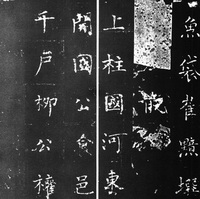 魚袋崔璵撰
上柱國河東
開國公食邑
千戶柳公權